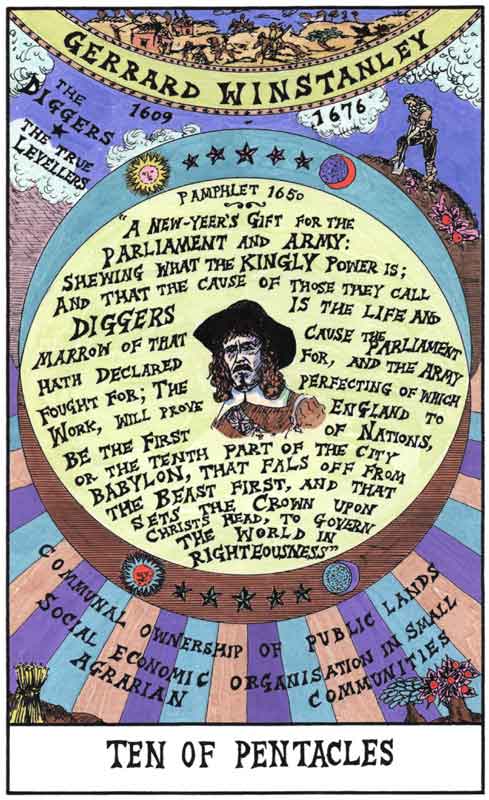 GERRARD WINSTANLEY
THE
DIGGERS
★
THE TRUE
LEVELLERS
1609
1676
PAMPHLET 1650
"A NEW-YEER'S GIFT FOR THE
PARLIAMENT AND ARMY:
SHEWING WHAT THE KINGLY POWER IS;
AND THAT THE CAUSE OF THOSE THEY CALL
DIGGERS IS THE LIFE AND
MARROW OF THAT CAUSE THE PARLIAMENT
HATH DECLARED FOR, AND THE ARMY
FOUGHT FOR; THE PERFECTING OF WHICH
WORK, WILL PROVE ENGLAND TO
BE THE FIRST OF NATIONS,
OR THE TENTH PART OF THE CITY
BABYLON, THAT FALS OFF FROM
THE BEAST FIRST, AND THAT
SETS THE CROWN UPON
CHRISTS HEAD, TO GOVERN
THE WORLD IN
RIGHTEOUSNESS"
COMMUNAL OWNERSHIP OF PUBLIC LANDS
SOCIAL ECONOMIC ORGANISATION IN SMALL
AGRARIAN COMMUNITIES
TEN OF PENTACLES